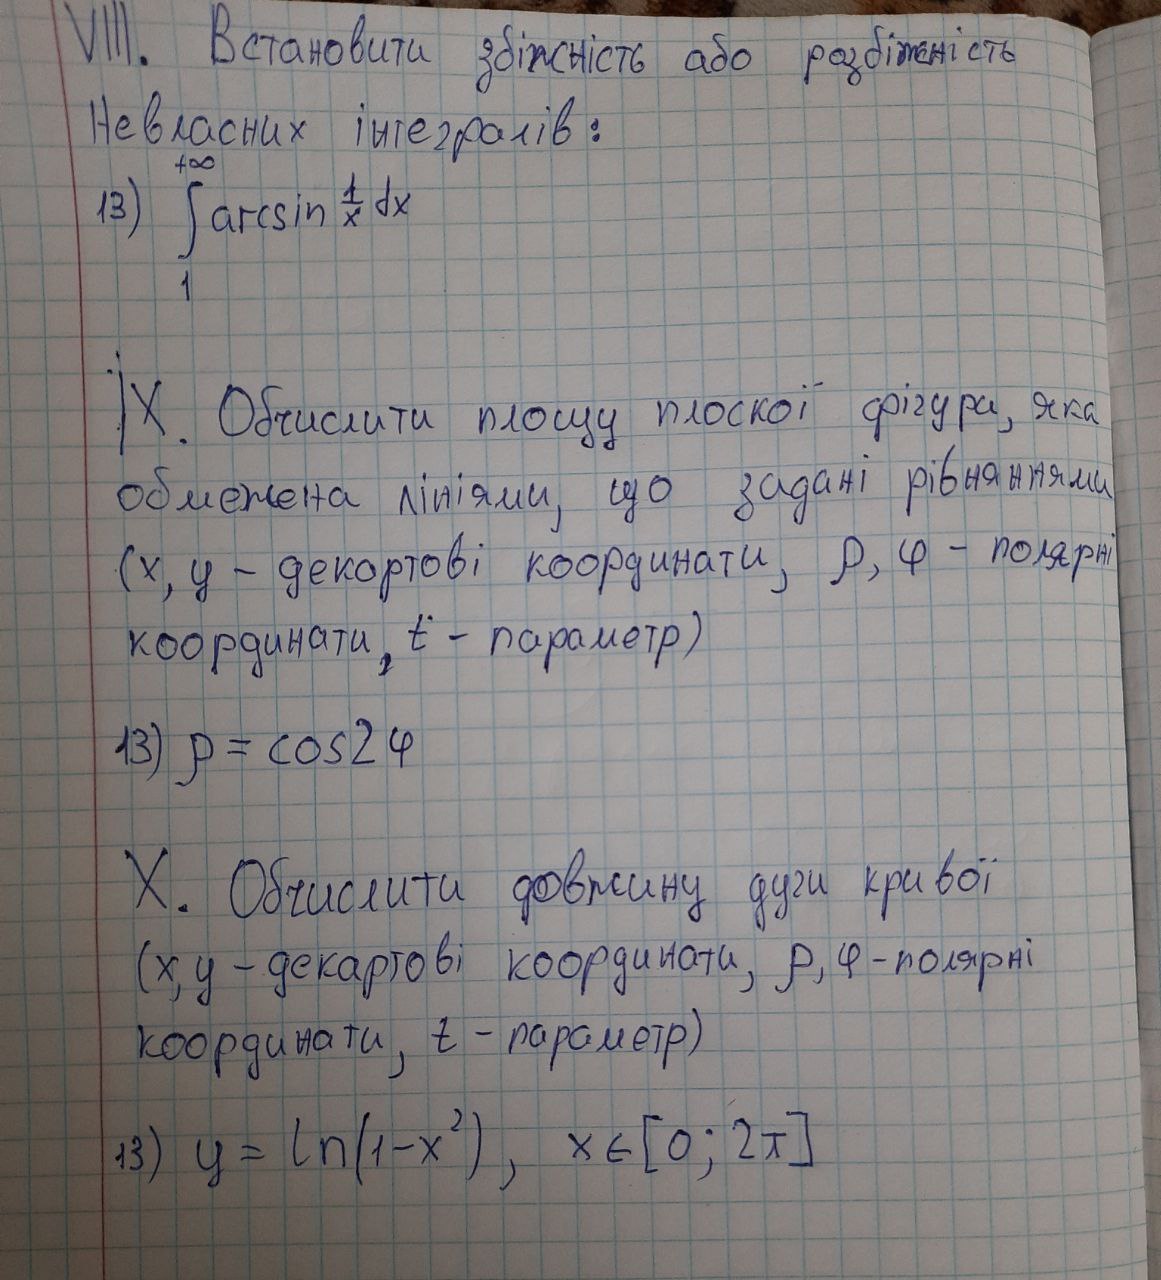 VIII. Встановити збіжність або розбіжність
Невласних інтегралів:
13) ∫₁^{+∞} arcsin 1/x dx
IX. Обчислити площу плоскої фігура, яка
обмежена лініями, що задані рівняннями
(x, y - декартові координати, ρ, φ - полярні
координати, t - параметр)
13) ρ = cos2φ
X. Обчислити довжину дуги кривої
(x, y - декартові координати, ρ, φ - полярні
координати, t - параметр)
13) y = ln(1-x²), x ∈ [0; 2π]